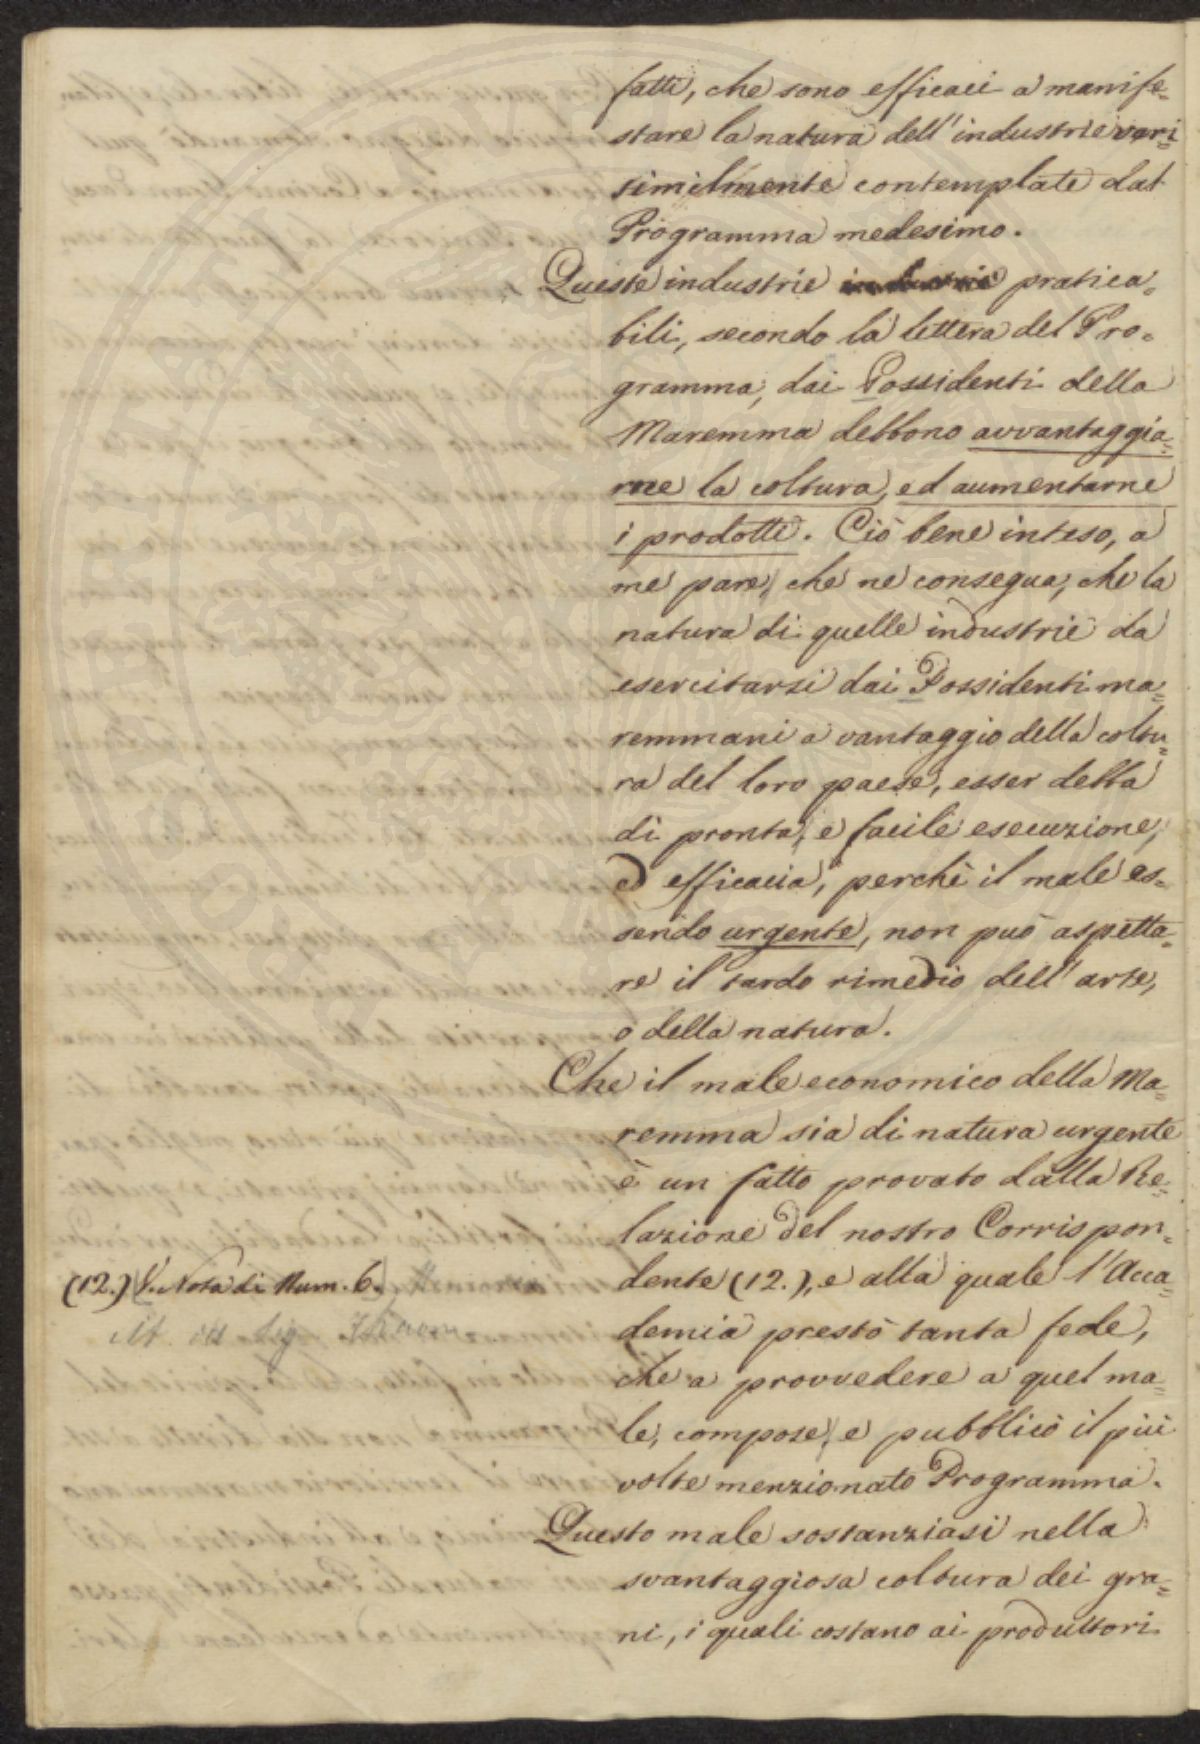 fatti, che sono efficaci a manife=
stare la natura dell'industrie veri=
similmente contemplate dal
Programma medesimo.
Queste industrie industrie pratica=
bili, secondo la lettera del Pro=
gramma, dai Possidenti della
Maremma debbono avvantaggia=
rne la coltura, ed aumentarne
i prodotti. Ciò bene inteso, a
me pare, che ne consegua, che la
natura di quelle industrie da
esercitarsi dai Possidenti ma=
remmani a vantaggio della coltu=
ra del loro paese, esser debba
di pronta, e facile esecuzione,
ed efficacia, perchè il male es=
sendo urgente, non può aspetta=
re il tardo rimedio dell'arte,
o della natura.
Che il male economico della Ma=
remma sia di natura urgente
è un fatto provato dalla Re=
lazione del nostro Corrispon=
dente (12.), e alla quale l'Acca=
demia prestò tanta fede,
che a provvedere a quel ma=
le, compose, e pubblicò il più
volte menzionato Programma.
Questo male sostanziasi nella
svantaggiosa coltura dei gra=
ni, i quali costano ai produttori
(12.) V. Nota di Num. 6.